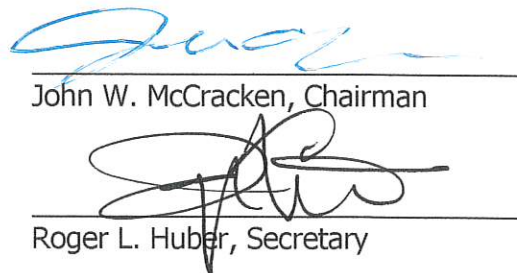 John W. McCracken, Chairman
Roger L. Huber, Secretary